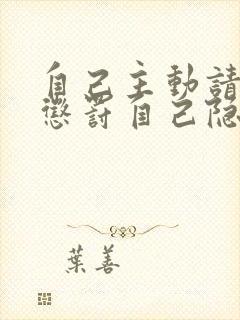 自己主動請
懲罰自己隐
葉善